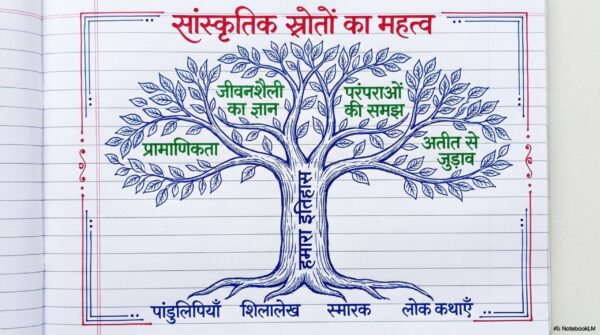 सांस्कृतिक स्रोतों का महत्व
जीवनशैली
का ज्ञान
परंपराओं
की समझ
प्रामाणिकता
अतीत से
जुड़ाव
हमारा इतिहास
पांडुलिपियाँ शिलालेख स्मारक लोक कथाएँ
NotebookLM